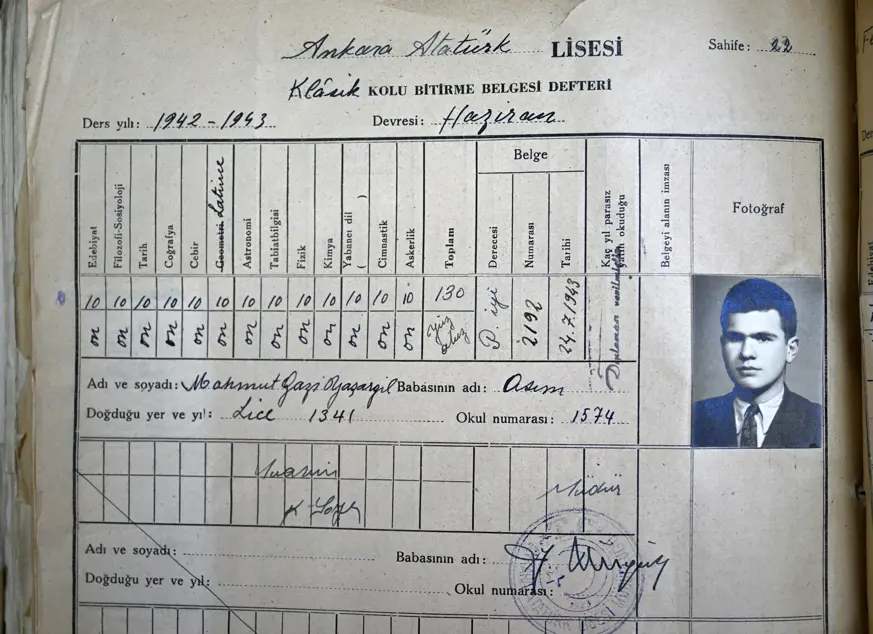 Ankara Atatürk LİSESİ
Sahife: 22
Klâsik KOLU BİTİRME BELGESİ DEFTERİ
Ders yılı: 1942-1943 Devresi: Haziran
Edebiyat
Filozofi-Sosiyoloji
Tarih
Coğrafya
Cebir
Geometri Latince
Astronomi
Tabiatbilgisi
Fizik
Kimya
Yabancı dil ( )
Cimnastik
Askerlik
Toplam
Belge
Derecesi
Numarası
Tarihi
Kaç yıl parasız yatılı okuduğu
Belgeyi alanın imzası
Fotoğraf
10 10 10 10 10 10 10 10 10 10 10 10 10 130
on on on on on on on on on on on on on yüz otuz
P. iyi
2192
24.7.1943
Adı ve soyadı: Mahmut Gazi Yazargil Babasının adı: Asım
Doğduğu yer ve yıl: Lice 1341 Okul numarası: 1574
Müdür
Adı ve soyadı: Babasının adı:
Doğduğu yer ve yıl: Okul numarası: